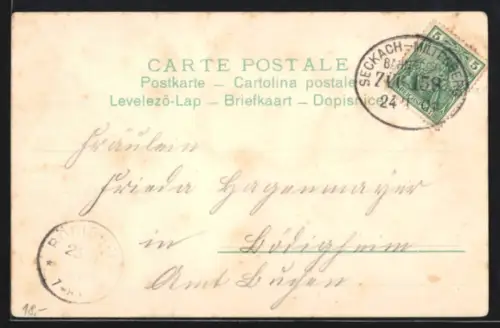 CARTE POSTALE
Postkarte — Cartolina postale
Levelezö-Lap — Briefkaart — Dopisnice
SECKACH—MILTENBERG
5 5
24
Fräulein
Frieda Hagenmayer
in Bödigheim
Amt Buchen.
18.-